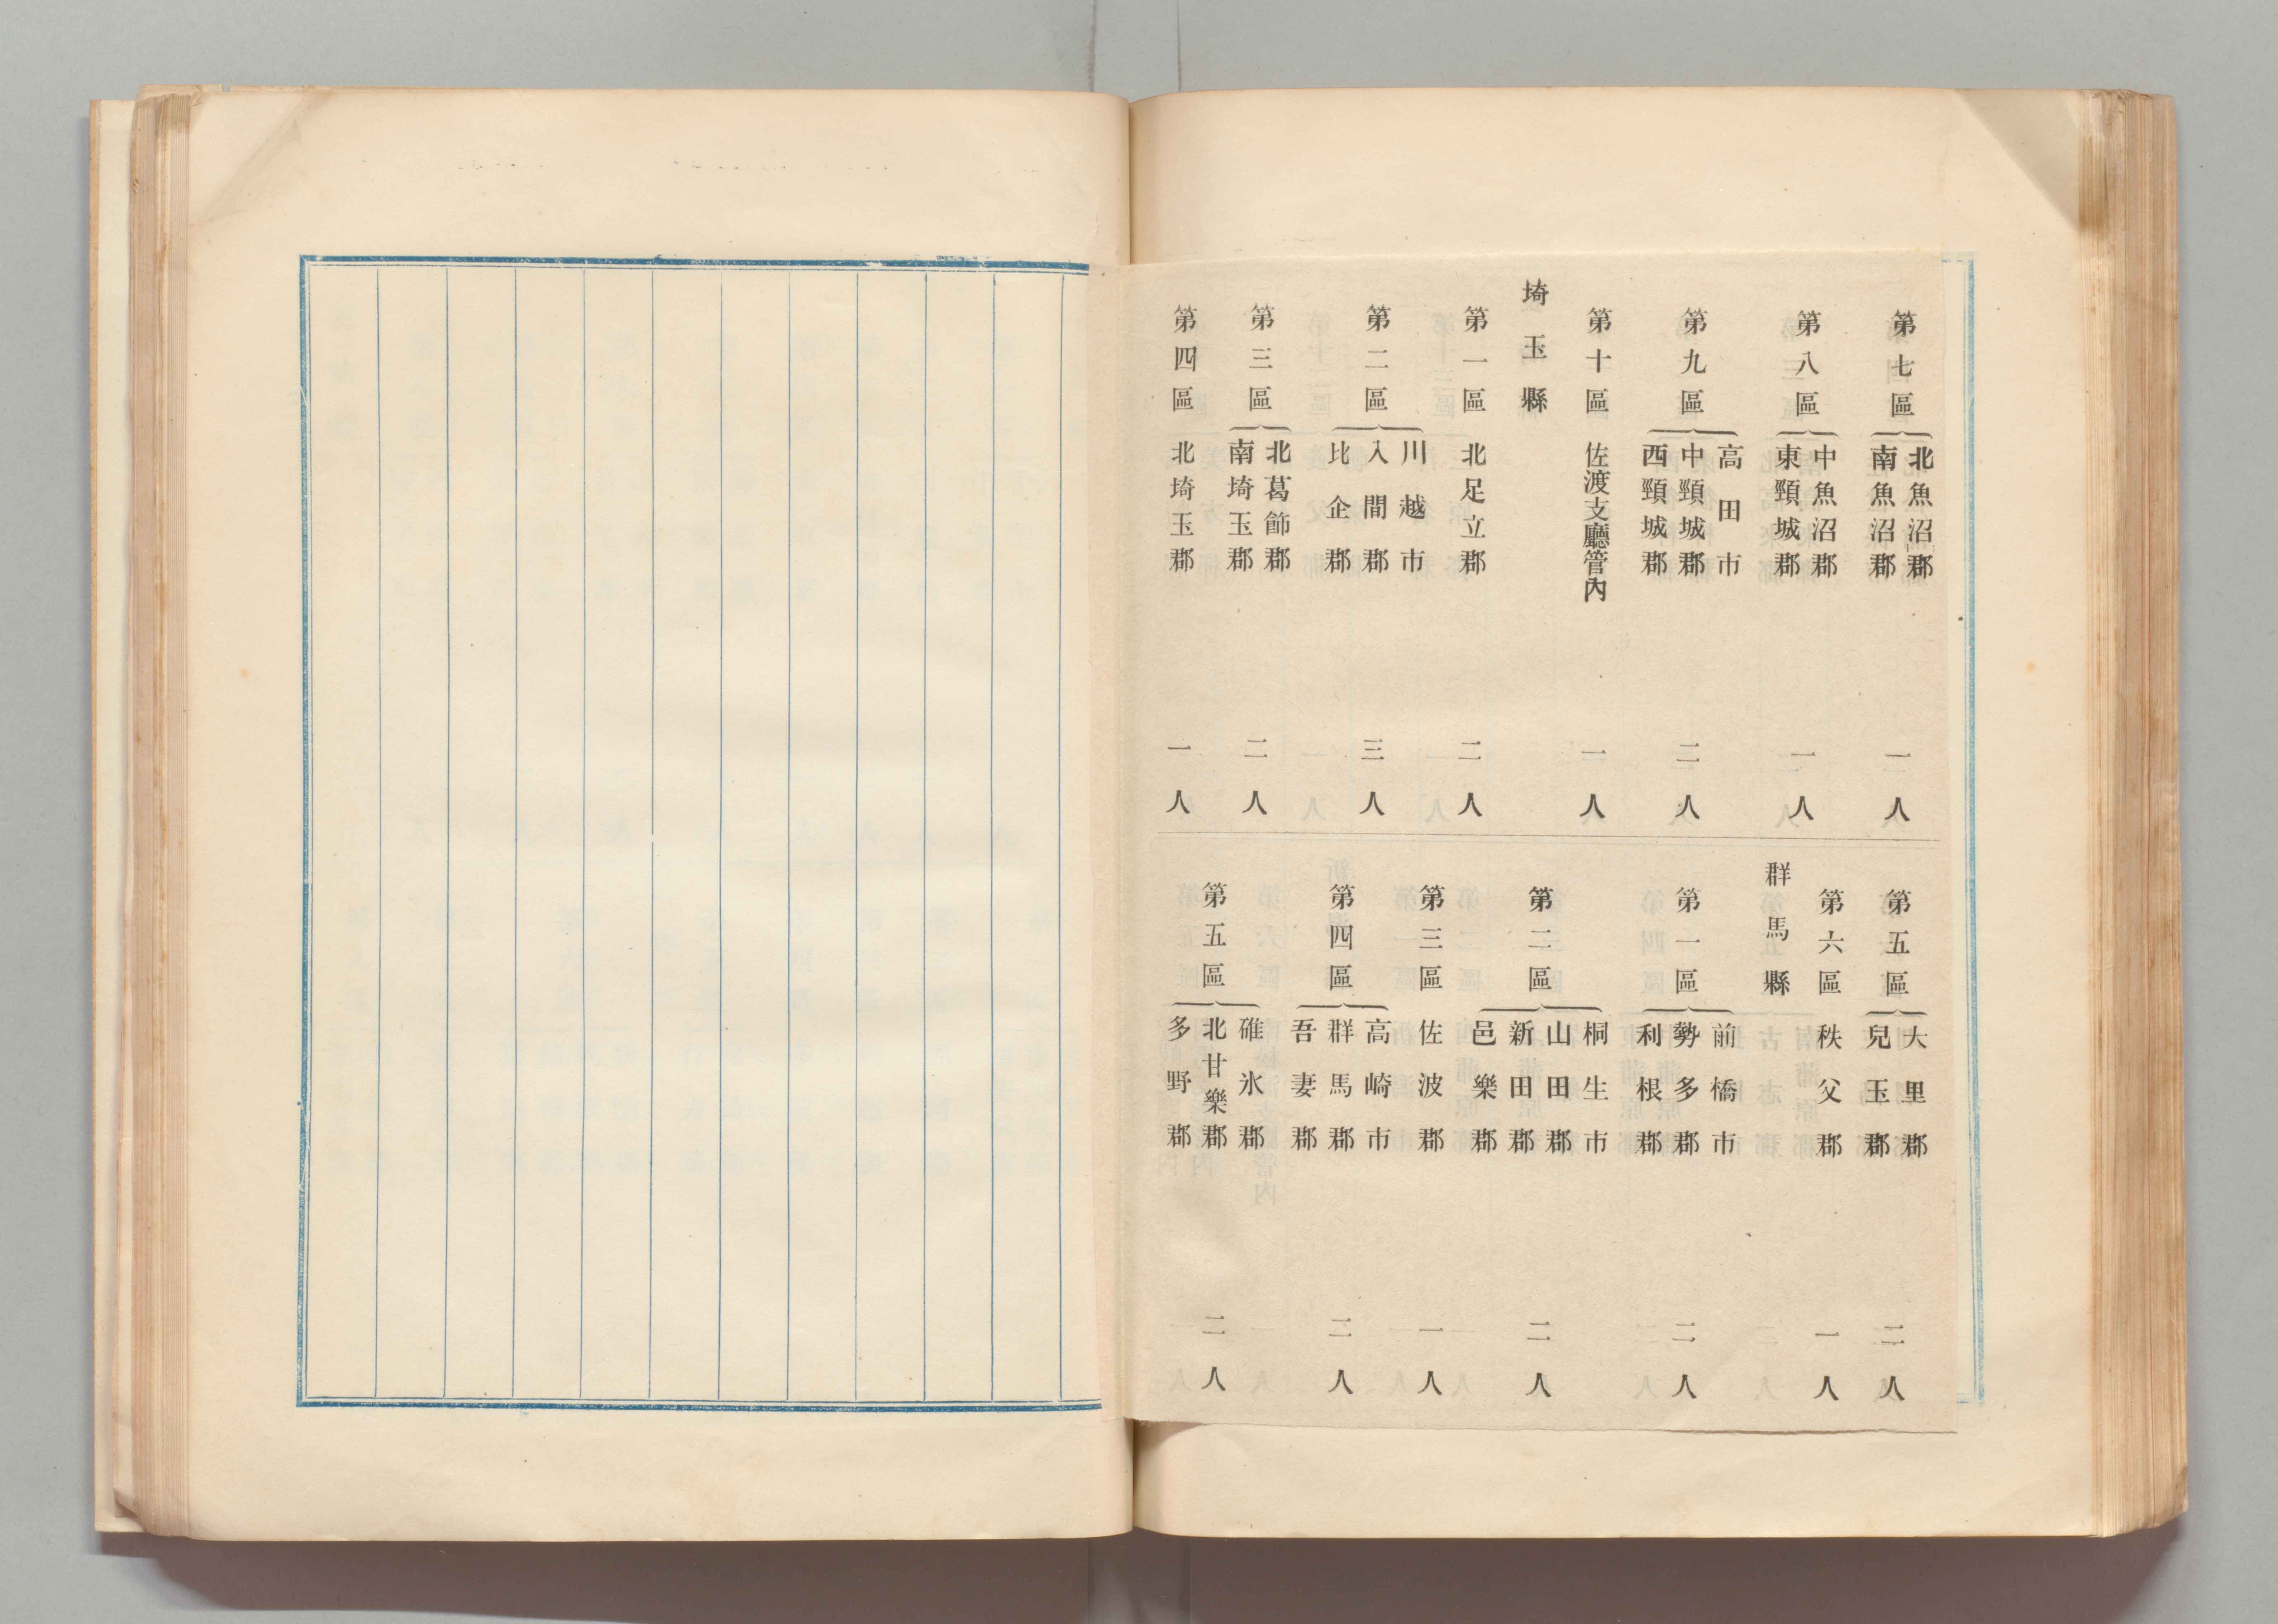 第七區
北魚沼郡
南魚沼郡
一人
第八區
中魚沼郡
東頸城郡
一人
第九區
高田市
中頸城郡
西頸城郡
二人
第十區
佐渡支廳管內
一人
埼玉縣
第一區
北足立郡
二人
第二區
川越市
入間郡
比企郡
三人
第三區
北葛飾郡
南埼玉郡
二人
第四區
北埼玉郡
一人
第五區
大里郡
兒玉郡
二人
第六區
秩父郡
一人
群馬縣
第一區
前橋市
勢多郡
利根郡
二人
第二區
桐生市
山田郡
新田郡
邑樂郡
二人
第三區
佐波郡
一人
第四區
高崎市
群馬郡
吾妻郡
二人
第五區
碓氷郡
北甘樂郡
多野郡
二人